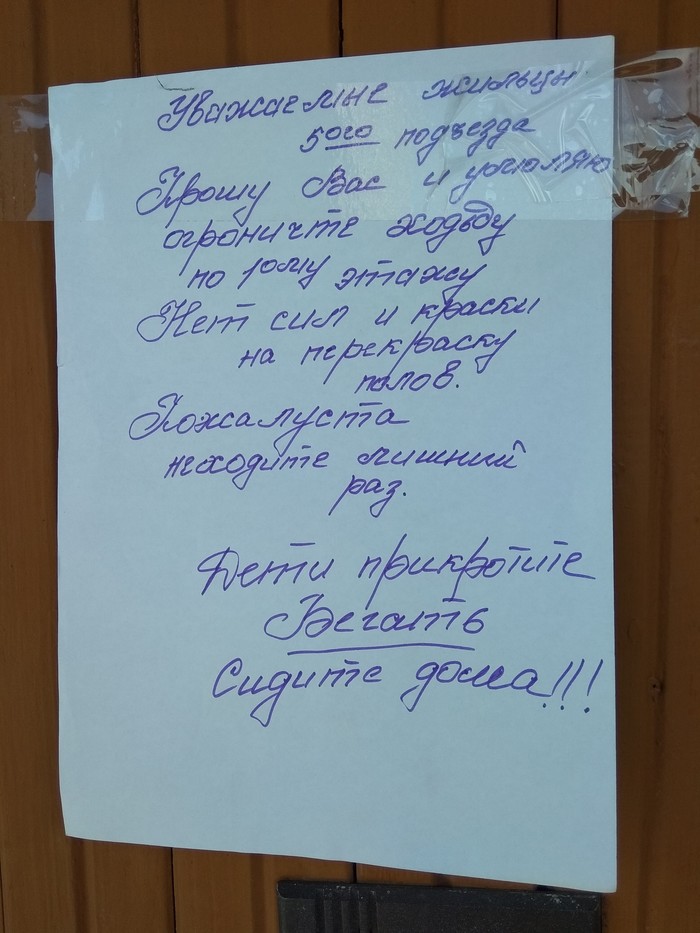 Уважаемые жильцы
5ого подъезда
Прошу Вас и умоляю
ограничте ходьбу
по 1ому этажу
Нет сил и краски
на перекраску
полов.
Пожалуста
неходите лишний
раз.
Дети прикротите
Бегать
Сидите дома!!!